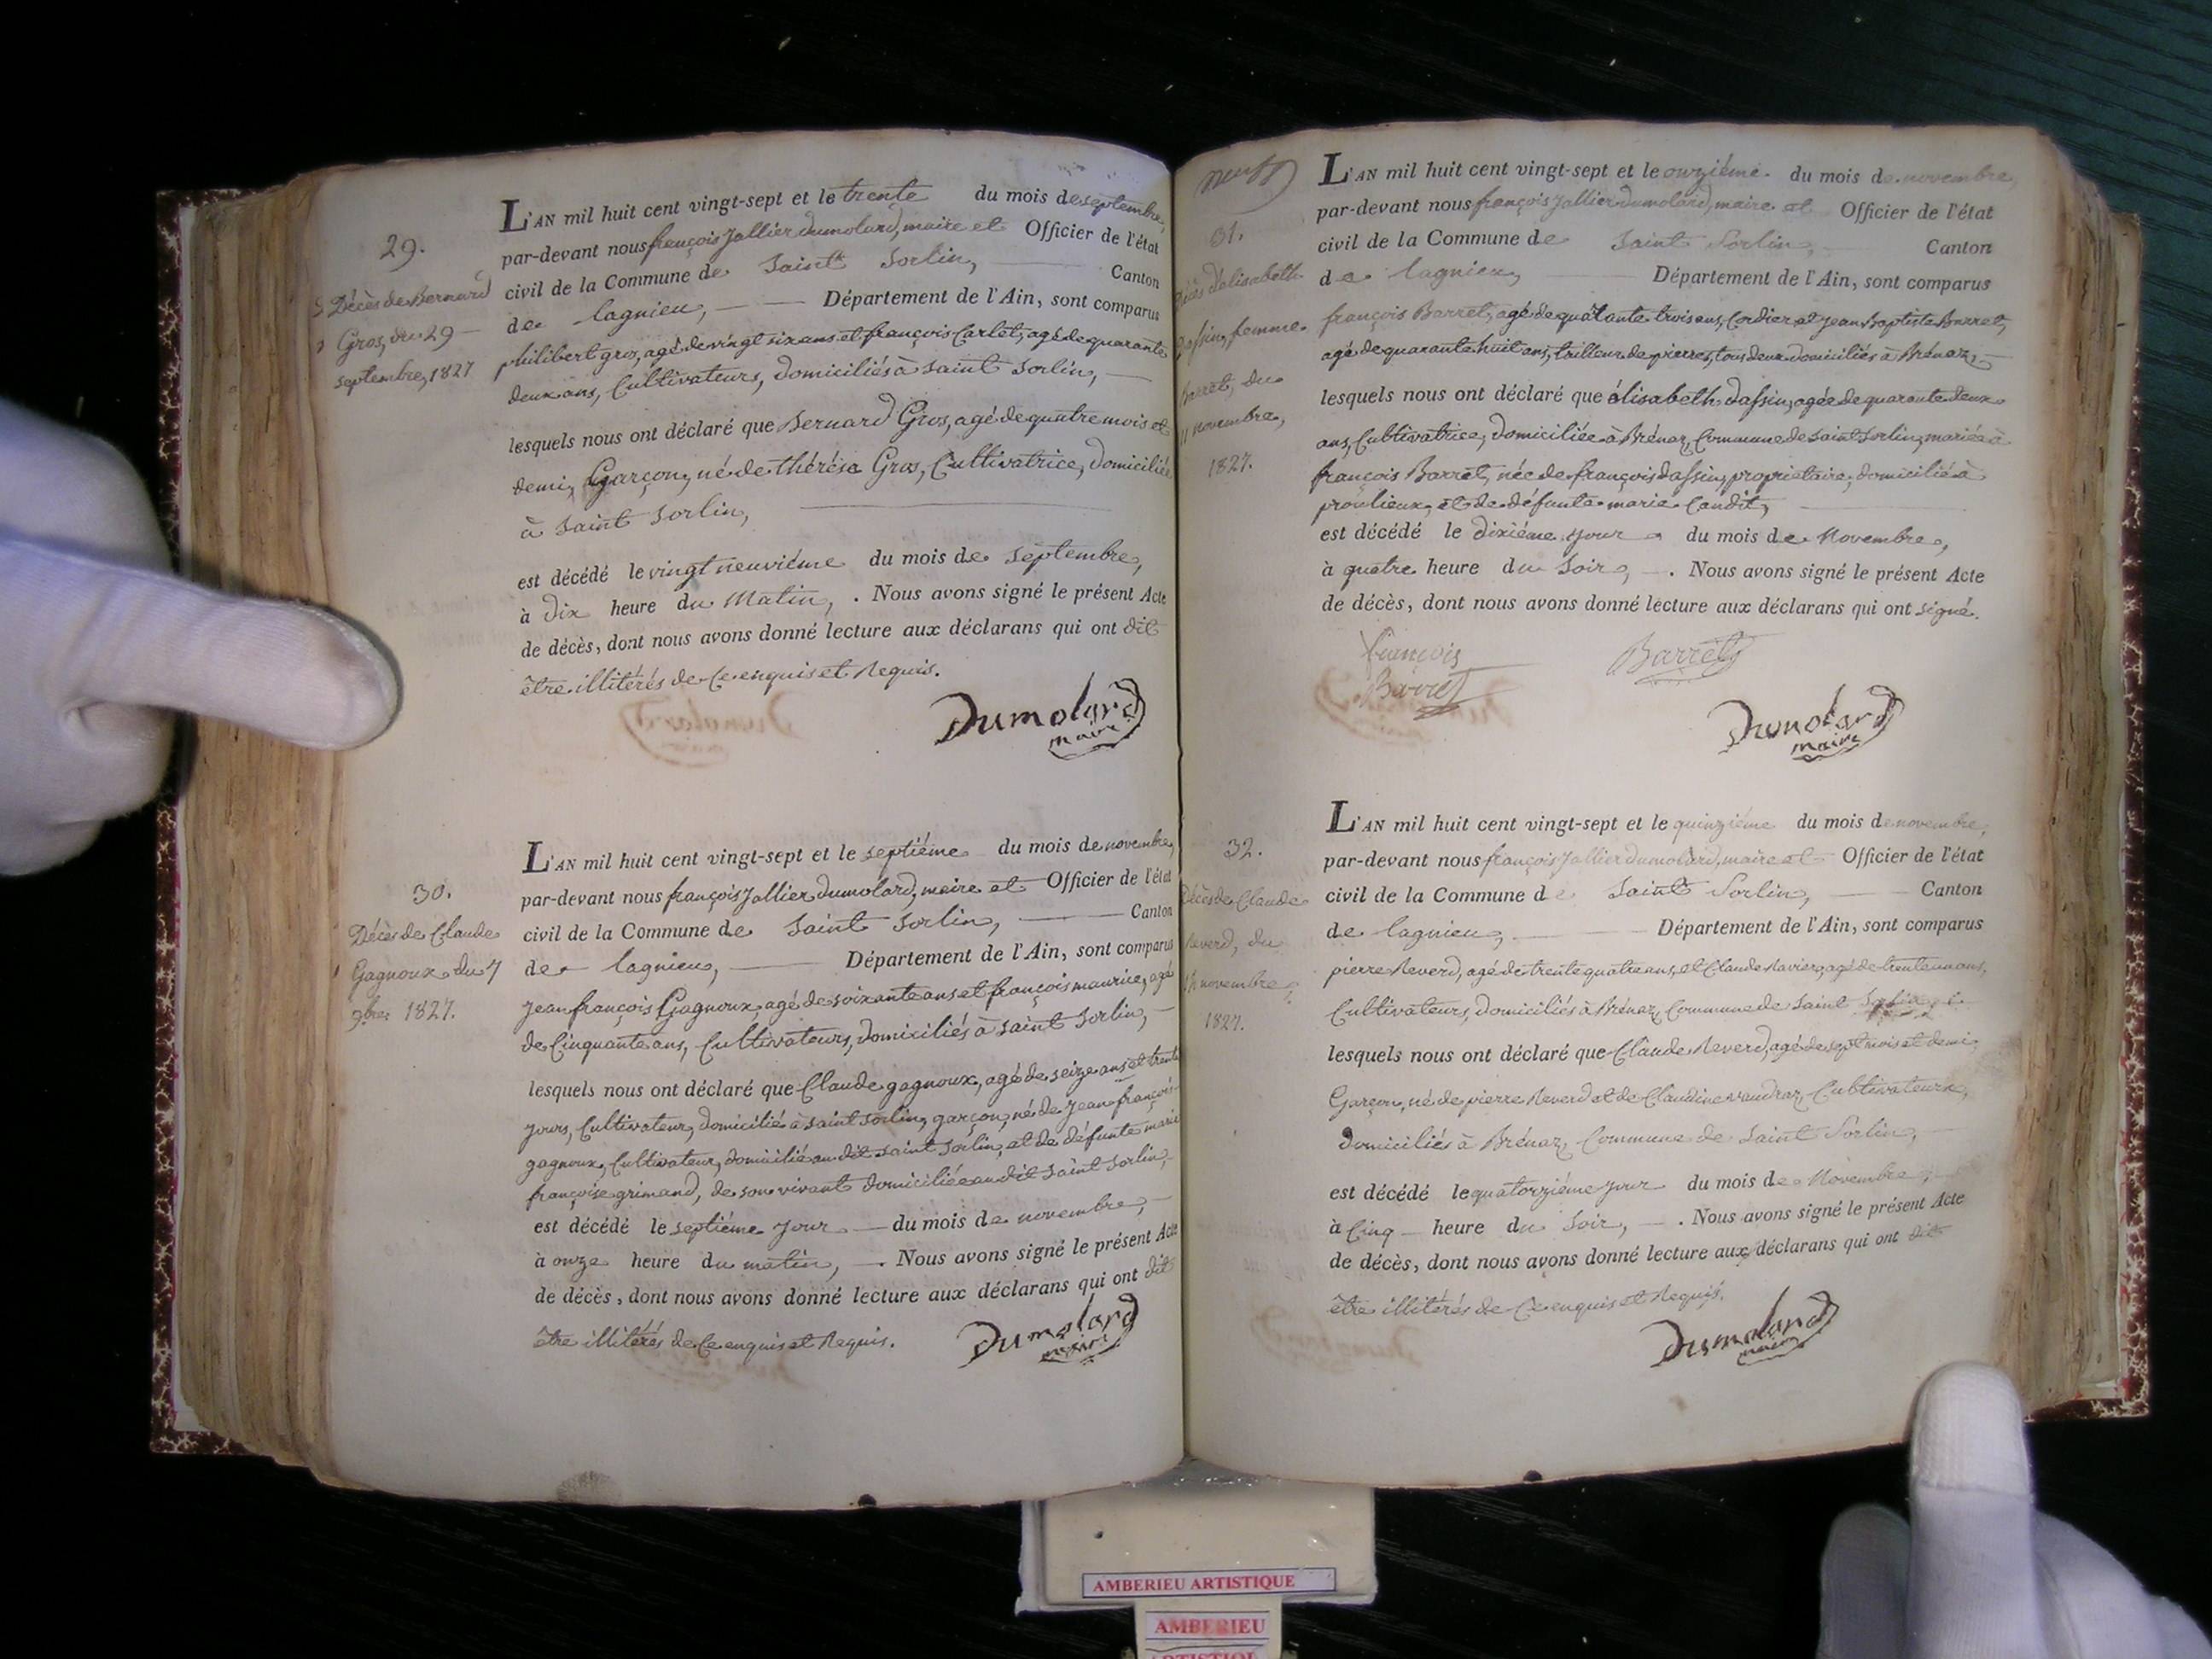 29.
Décès de Bernard
Gros, du 29
septembre, 1827
L'AN mil huit cent vingt-sept et le trente du mois de septembre,
par-devant nous françois Jallier dumolard, maire et Officier de l'état
civil de la Commune de Saint Sorlin, Canton
de lagnieu, Département de l'Ain, sont comparus
philibert gros, agé de vingt six ans et françois Carlet, agé de quarante
deux ans, Cultivateurs, domiciliés à saint Sorlin,
lesquels nous ont déclaré que Bernard Gros, agé de quatre mois et
demi, Garçon, né de thérése Gros, Cultivatrice, domiciliée
à Saint Sorlin,
est décédé le vingt neuviéme du mois de septembre,
à dix heure du Matin, . Nous avons signé le présent Acte
de décès, dont nous avons donné lecture aux déclarans qui ont dit
être illitérés de Ce enquis et Requis.
Dumolard
maire
30.
Décès de Claude
Gagnoux du 7
9bre 1827.
L'AN mil huit cent vingt-sept et le septiéme du mois de novembre,
par-devant nous françois Jallier dumolard, maire et Officier de l'état
civil de la Commune de Saint Sorlin, Canton
de lagnieu, Département de l'Ain, sont comparus
Jean françois Gagnoux, agé de soixante ans et françois maurice, agé
de Cinquante ans, Cultivateurs, domiciliés à saint Sorlin,
lesquels nous ont déclaré que Claude gagnoux, agé de seize ans et trente
jours, Cultivateur, domicilié à saint Sorlin, garçon, né de Jean françois
gagnoux, Cultivateur, domicilié au dit saint Sorlin, et de défunte marie
françoise grimand, de son vivant domiciliée au dit saint Sorlin,
est décédé le septiéme jour du mois de novembre,
à onze heure du matin, . Nous avons signé le présent Acte
de décès, dont nous avons donné lecture aux déclarans qui ont dit
être illitérés de Ce enquis et Requis.
Dumolard
maire
neuf
31.
Décès d'elisabeth
Dassin, femme
Barret, du
11 novembre,
1827.
L'AN mil huit cent vingt-sept et le onziéme du mois de novembre
par-devant nous françois Jallier dumolard, maire et Officier de l'état
civil de la Commune de Saint Sorlin, Canton
de lagnieu, Département de l'Ain, sont comparus
françois Barret, agé de quarante trois ans, Cordier et jean Baptiste Barret,
agé de quarante huit ans, tailleur de pierres, tous deux domiciliés à Brénaz,
lesquels nous ont déclaré que élisabeth dassin, agée de quarante deux
ans, Cultivatrice, domiciliée à Brénaz, Commune de Saint Sorlin, mariée à
françois Barret, née de françois dassin, propriétaire, domicilié à
proulieux, et de défunte marie Candit,
est décédé le dixiéme jour du mois de Novembre,
à quatre heure du Soir, . Nous avons signé le présent Acte
de décès, dont nous avons donné lecture aux déclarans qui ont signé.
françois Barret
Barret
Dumolard
maire
32.
Décès de Claude
Reverd, du
14 novembre
1827.
L'AN mil huit cent vingt-sept et le quinziéme du mois de novembre,
par-devant nous françois Jallier dumolard, maire et Officier de l'état
civil de la Commune de Saint Sorlin, Canton
de lagnieu, Département de l'Ain, sont comparus
pierre Reverd, agé de trente quatre ans, et Claude Ravier, agé de trente un ans,
Cultivateurs, domiciliés à Brénaz, Commune de Saint Sorlin,
lesquels nous ont déclaré que Claude Reverd, agé de sept mois et demi,
Garçon, né de pierre Reverd et de Claudine vaudraz, Cultivateurs,
domiciliés à Brénaz, Commune de Saint Sorlin,
est décédé le quatorziéme jour du mois de Novembre,
à Cinq heure du Soir, . Nous avons signé le présent Acte
de décès, dont nous avons donné lecture aux déclarans qui ont dit
être illitérés de Ce enquis et Requis.
Dumolard
maire
AMBERIEU ARTISTIQUE
AMBERIEU
ARTISTIQUE